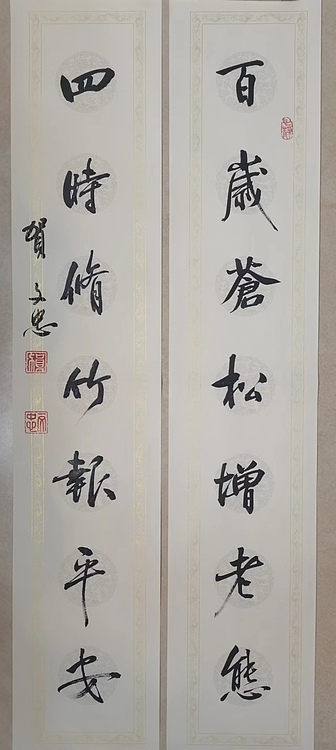 百歲蒼松增老態
四時脩竹報平安
賀文忠
文忠